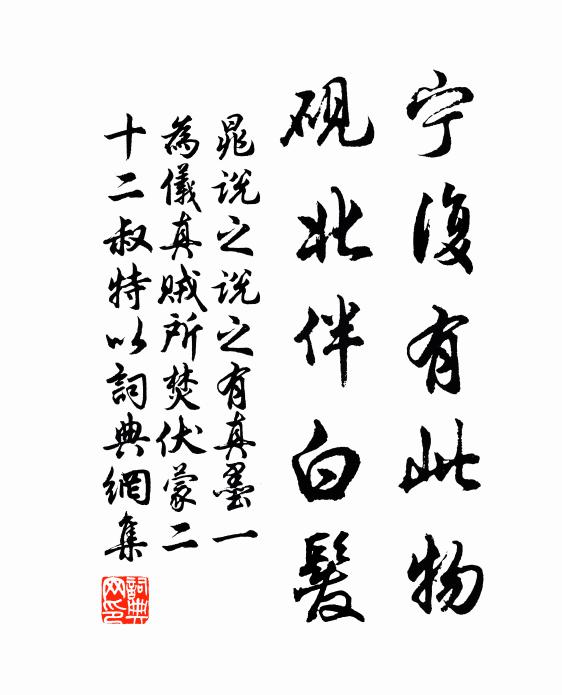 宁復有此物
硯北伴白髮
晁説之説之有真墨一
為儀真賊所焚伏蒙二
十二叔特以詞典網集
詞典网印